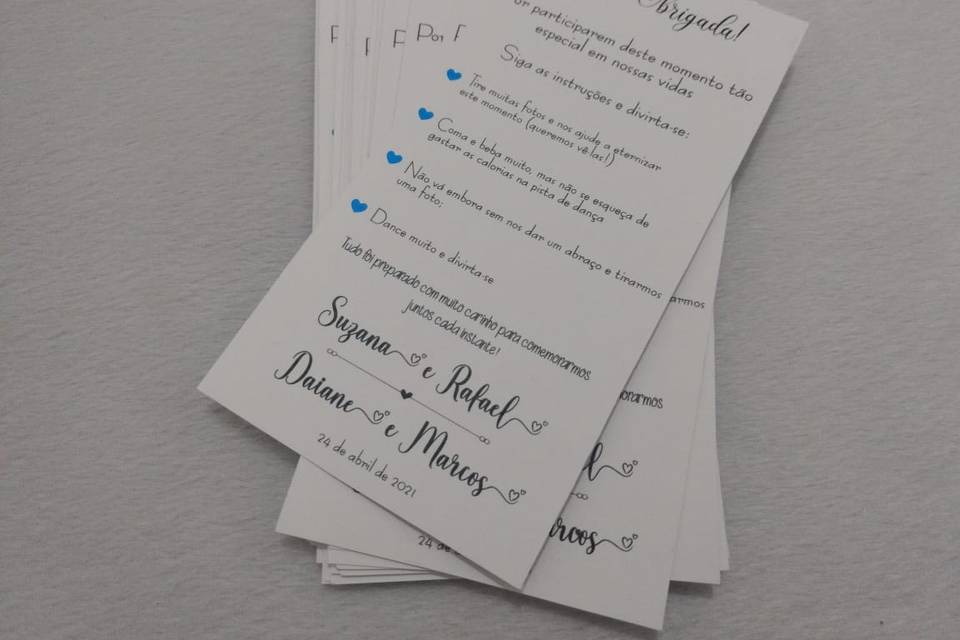 Obrigada!
or participarem deste momento tão
especial em nossas vidas
Siga as instruções e divirta-se:
Tire muitas fotos e nos ajude a eternizar
este momento (queremos vê-las!)
Coma e beba muito, mas não se esqueça de
gastar as calorias na pista de dança
Não vá embora sem nos dar um abraço e tirarmos
uma foto;
Dance muito e divirta-se
Tudo foi preparado com muito carinho para comemorarmos
juntos cada instante!
Suzana e Rafael
Daiane e Marcos
24 de abril de 2021
Por
armos
orarmos
l
arcos
24 de